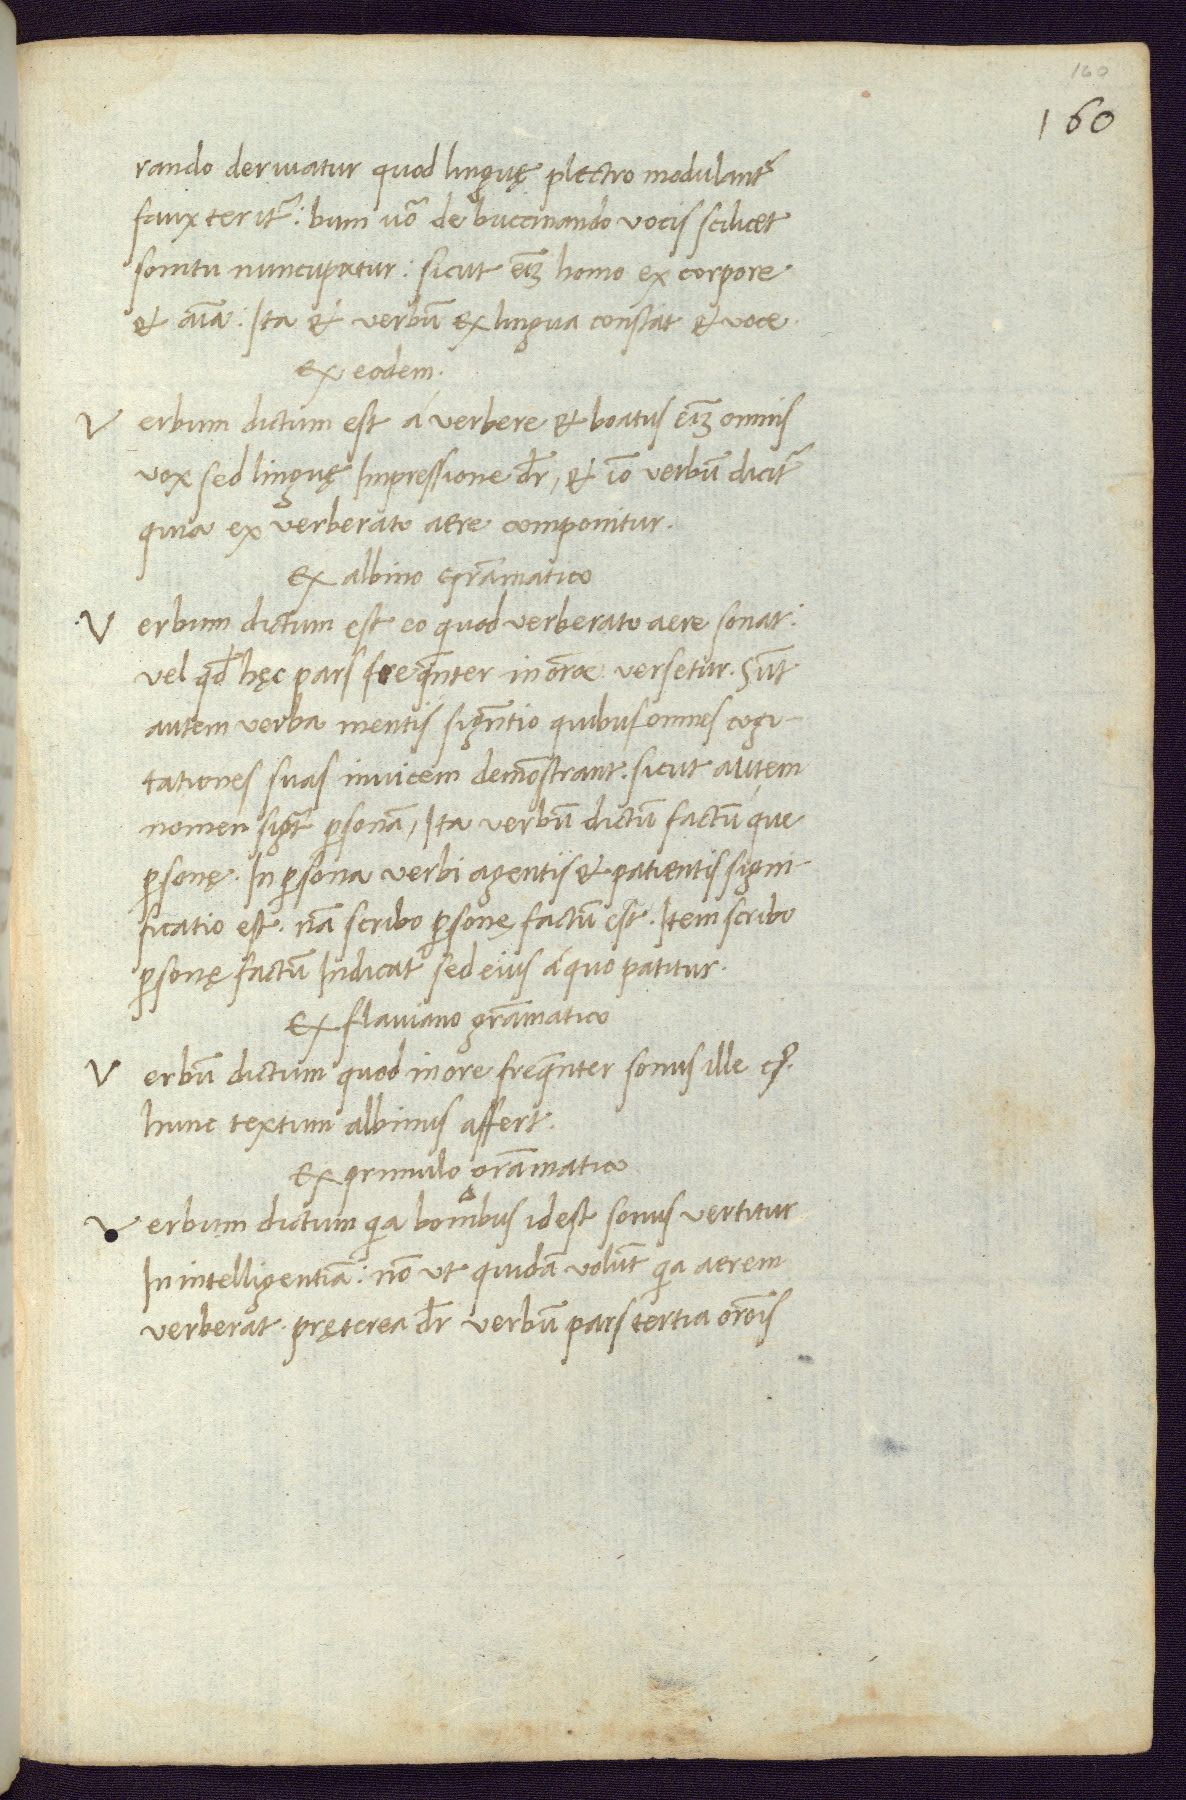 160
160
rando deriuatur quod linguę plectro modulant᷑
faux terit᷑: bum uō de buccinando vocis scilicet
sonitu nuncupatur: sicut eīꝫ homo ex corpore
et aīa: Ita et verbū ex lingua constat et voce.
Ex eodem.
Verbum dictum est á verbere et boatus eīꝫ omnis
vox sed linguę Impressione dr̄, et iō verbū dicit᷑
quia ex verberato aere componitur.
Ex albino grāmatico
Verbum dictum est eo quod verberato aere sonat:
vel qđ hęc pars freq̄nter in orōe versetur. Sūt
autem verba mentis sign̄tio quibus omnes cogi-
tationes suas invicem demōstrant. sicut autem
nomen sigt̄ ꝑsonā, Ita verbū dictū factū que
ꝑsonę. In ꝑsona verbi agentis et patientis signi-
ficatio est. nā scribo ꝑsonę factū est. Item scribo
ꝑsonę factū Indicat᷑ sed eius á quo patitur.
Ex flauiano grāmatico
Verbū dictum quod in ore freq̄nter sonus ille
hunc textum albinus affert.
Ex primulo grāmatico
Verbum dictum qa bombus id est sonus vertitur
In intelligentiā: nō ut quidā volūt qa aerem
verberat. prętcrea dr̄ verbū pars tertia orōis